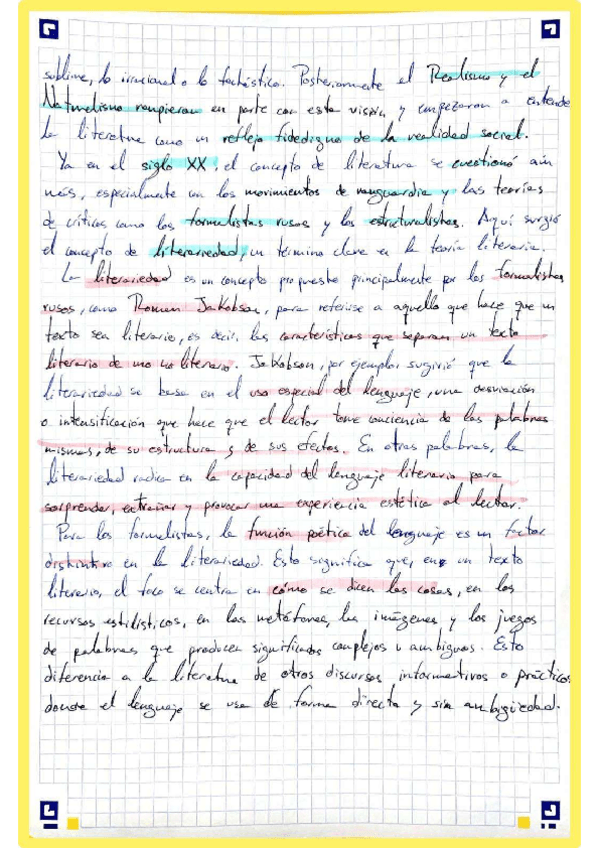 sublime, lo irracional o lo fantástico. Posteriormente el Realismo y el
Naturalismo rompieron en parte con esta visión y empezaron a entender
la literatura como un reflejo fidedigno de la realidad social.
Ya en el siglo XX, el concepto de literatura se cuestionó aún
más, especialmente con los movimientos de vanguardia y las teorías
de críticos como los formalistas rusos y los estructuralistas. Aquí surgió
el concepto de literariedad, un término clave en la teoría literaria.
La literariedad es un concepto propuesto principalmente por los formalistas
rusos, como Roman Jakobson, para referirse a aquello que hace que un
texto sea literario, es decir, las características que separan un texto
literario de uno no literario. Jakobson, por ejemplo, sugirió que la
literariedad se basa en el uso especial del lenguaje, una desviación
o intensificación que hace que el lector tome conciencia de las palabras
mismas, de su estructura y de sus efectos. En otras palabras, la
literariedad radica en la capacidad del lenguaje literario para
sorprender, extrañar y provocar una experiencia estética al lector.
Para los formalistas, la función poética del lenguaje es un factor
distintivo en la literariedad. Esto significa que, en un texto
literario, el foco se centra en cómo se dicen las cosas, en los
recursos estilísticos, en las metáforas, las imágenes y los juegos
de palabras que producen significados complejos o ambiguos. Esto
diferencia a la literatura de otros discursos informativos o prácticos
donde el lenguaje se usa de forma directa y sin ambigüedad.